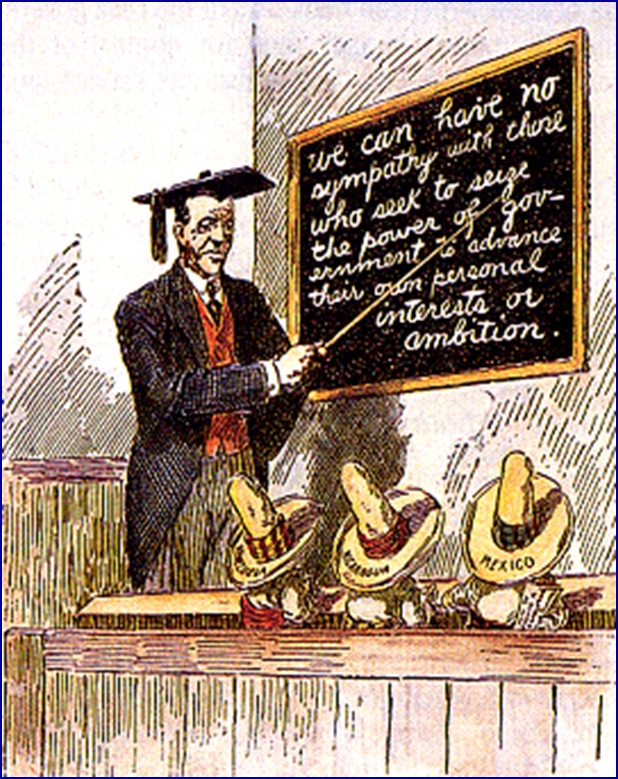 we can have no
sympathy with those
who seek to seize
the power of gov-
ernment to advance
their own personal
interests or
ambition.
NICARAGUA
MEXICO